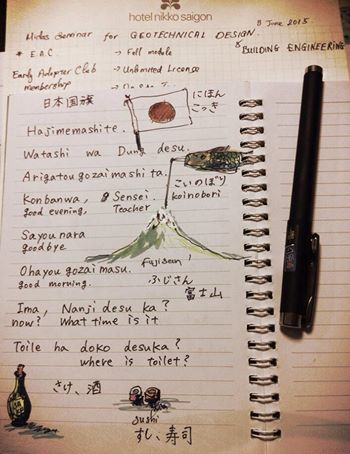 hotel nikko saigon
8 June 2015.
Midas Seminar for GEOTECHNICAL DESIGN.
& BUILDING ENGINEERING
* E.A.C → Full module
Early Adopter Club → Unlimited License
membership
日本国旗
にほん
こっき
Hajimemashite.
Watashi wa Dung desu.
Arigatou gozaimashita.
こいのぼり
koinobori
Konbanwa, Sensei.
good evening, Teacher
Sayounara
goodbye
Fujisan
Ohayou gozaimasu.
good morning.
ふじさん
富士山
Ima, Nanji desu ka?
now? What time is it
Toile ha doko desuka?
where is toilet?
さけ、酒
sushi
すし、寿司